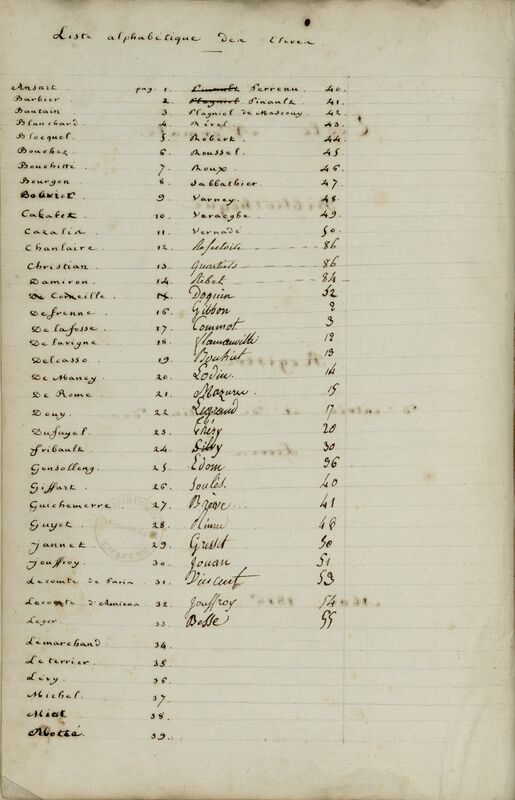 Liste alphabétique des Eleves
Ansart pag. 1. Pinault Perreau 40.
Barbier 2. Plagniol Pinault. 41.
Bautain 3. Plagniol de Mascouy. 42.
Blanchard 4. Rével 43.
Blocquel 5. Robert. 44.
Bouchez 6. Roussel. 45.
Bouchitté 7. Roux. 46.
Bourgon 8. Sabbathier. 47.
9. Varney. 48.
Cabaret 10. Veraeghe. 49.
Cazalis 11. Vernadé 50.
Chanlaire 12. Refectoire 86
Christian 13. Quartiers 86
Damiron 14. Rebet 84
De Corneille. Doquin 52
Defrenne 16. Gibbon 2
De lafosse 17. Commot 3
De lavigne 18. Hamauville 12
Delcasso 19. Bouhiet 13
De Maney 20. Lodin 14
De Rome. 21. Mazure 15
Douy 22. Legrand 17
Dufayel 23. Théry 20
Fribault 24. Silvy 30
Gensolleng. 25. Edom 36
Giffart 26. Soulés 40
Guichemerre 27. 41
Guyot 28. 48
Jannet 29. Griset 50
Jouffroy 30. Jouan 51
Lecomte de Paris 31. Vincent 53
Lecomte d'Amiens 32. Jouffroy 54
Leger 33. Besse 55
Lemarchand 34.
Leterrier 35.
Lévy 36.
Michel 37.
Miet 38.
Motté 39.